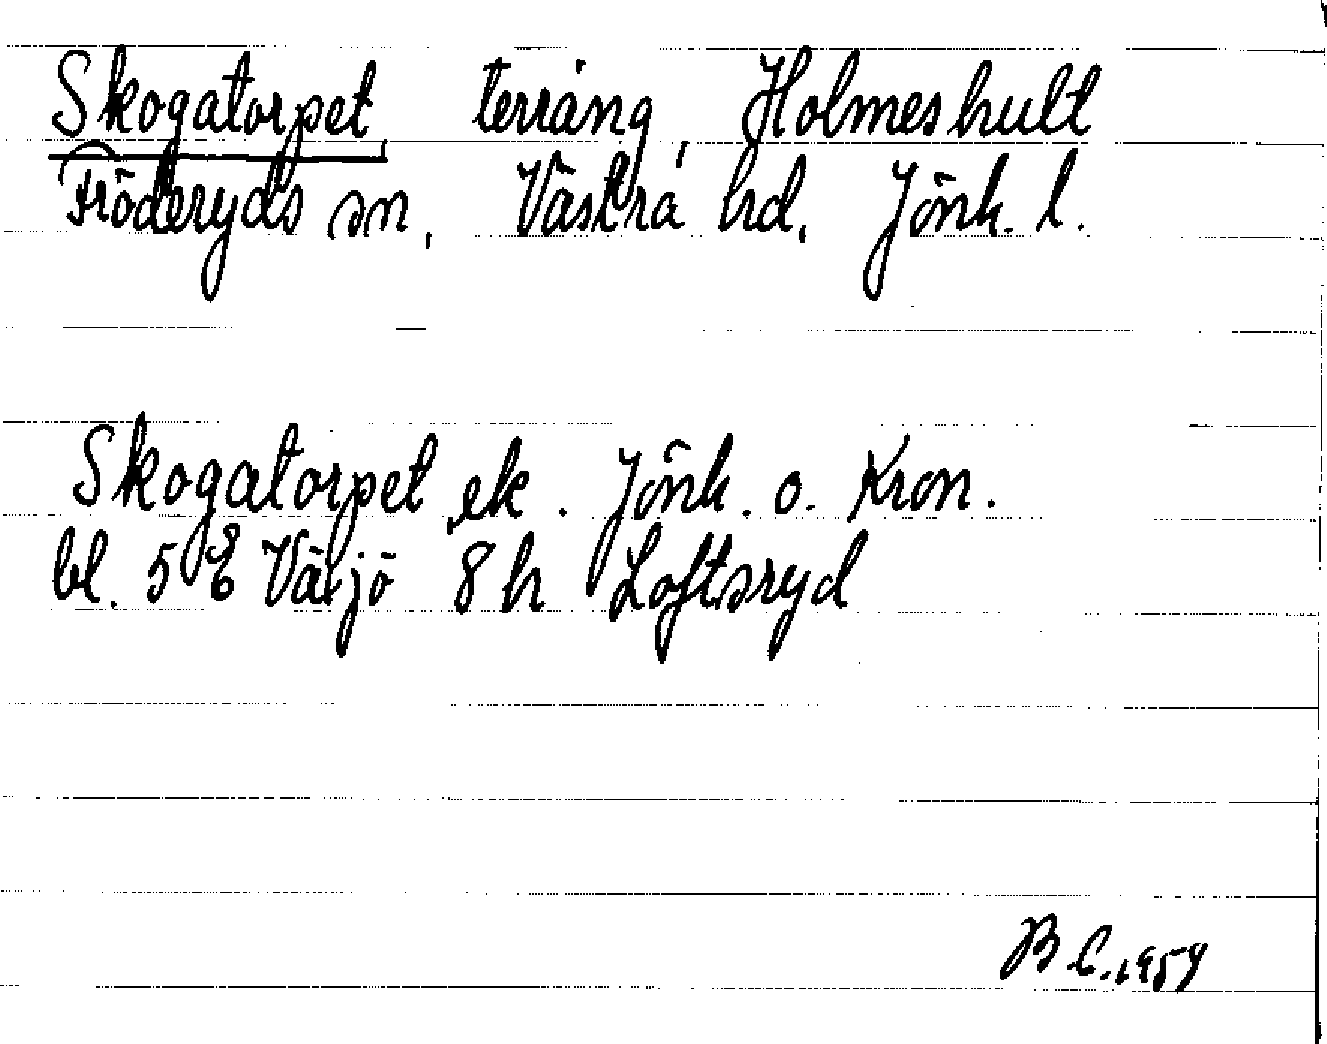 Skogatorpet, terräng, Holmeshult
Fröderyds sn, Västra hd, Jönk. l.
Skogatorpet ek. Jönk. o. Kron.
bl. 5 E Växjö 8 h Loftsryd